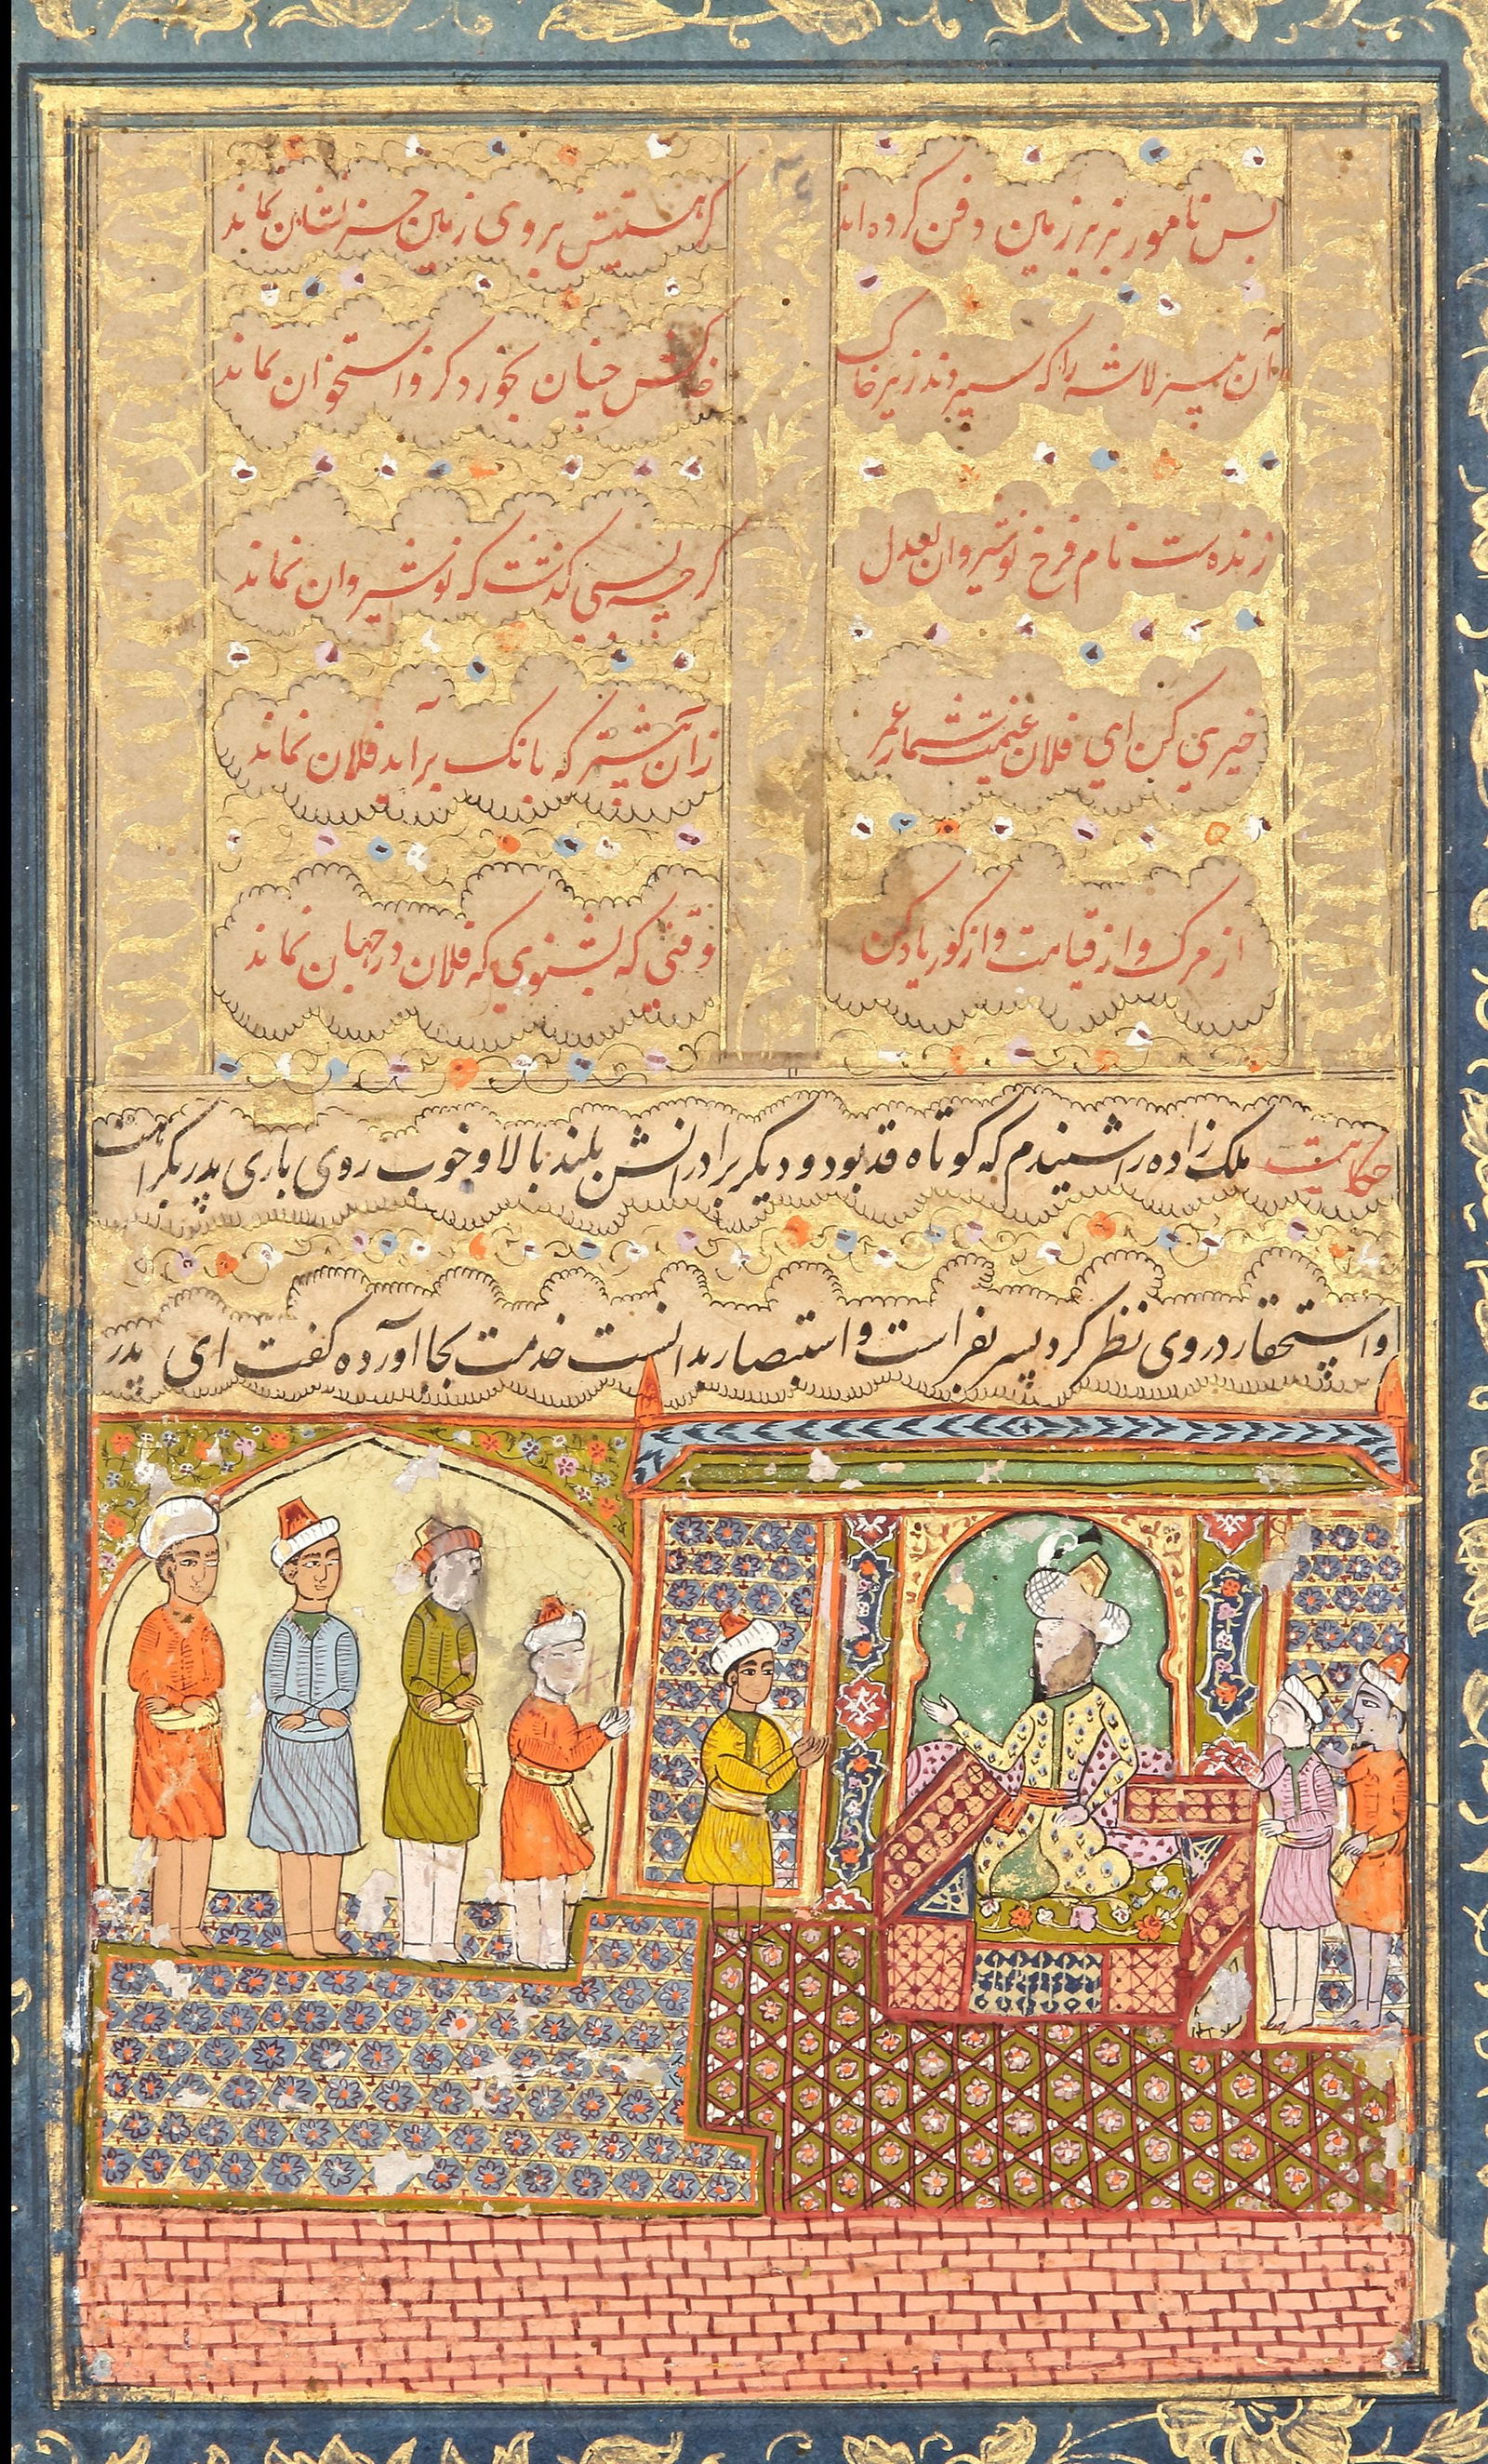 بس نامور بزیر زمین دفن کرده‌اند
کز هستیش بروی زمین نشان نماند
آن پیر لاشه را که سپردند زیر خاک
خاکش چنان بخورد کزو استخوان نماند
زنده‌ست نام فرخ نوشیروان بعدل
گرچه بسی گذشت که نوشیروان نماند
خیری کن ای فلان غنیمت شمار عمر
زان پیشتر که بانگ برآید فلان نماند
از مرگ و از قیامت و از گور یاد کن
وقتی که بشنوی که فلان در جهان نماند
حکایت ملک‌زاده را شنیدم که کوتاه قد بود و دیگر برادرانش بلند بالا و خوب روی باری پدر بکراهت
و استحقار در وی نظر کرد پسر بفراست و استبصار بدانست خدمت بجا آورده گفت ای پدر